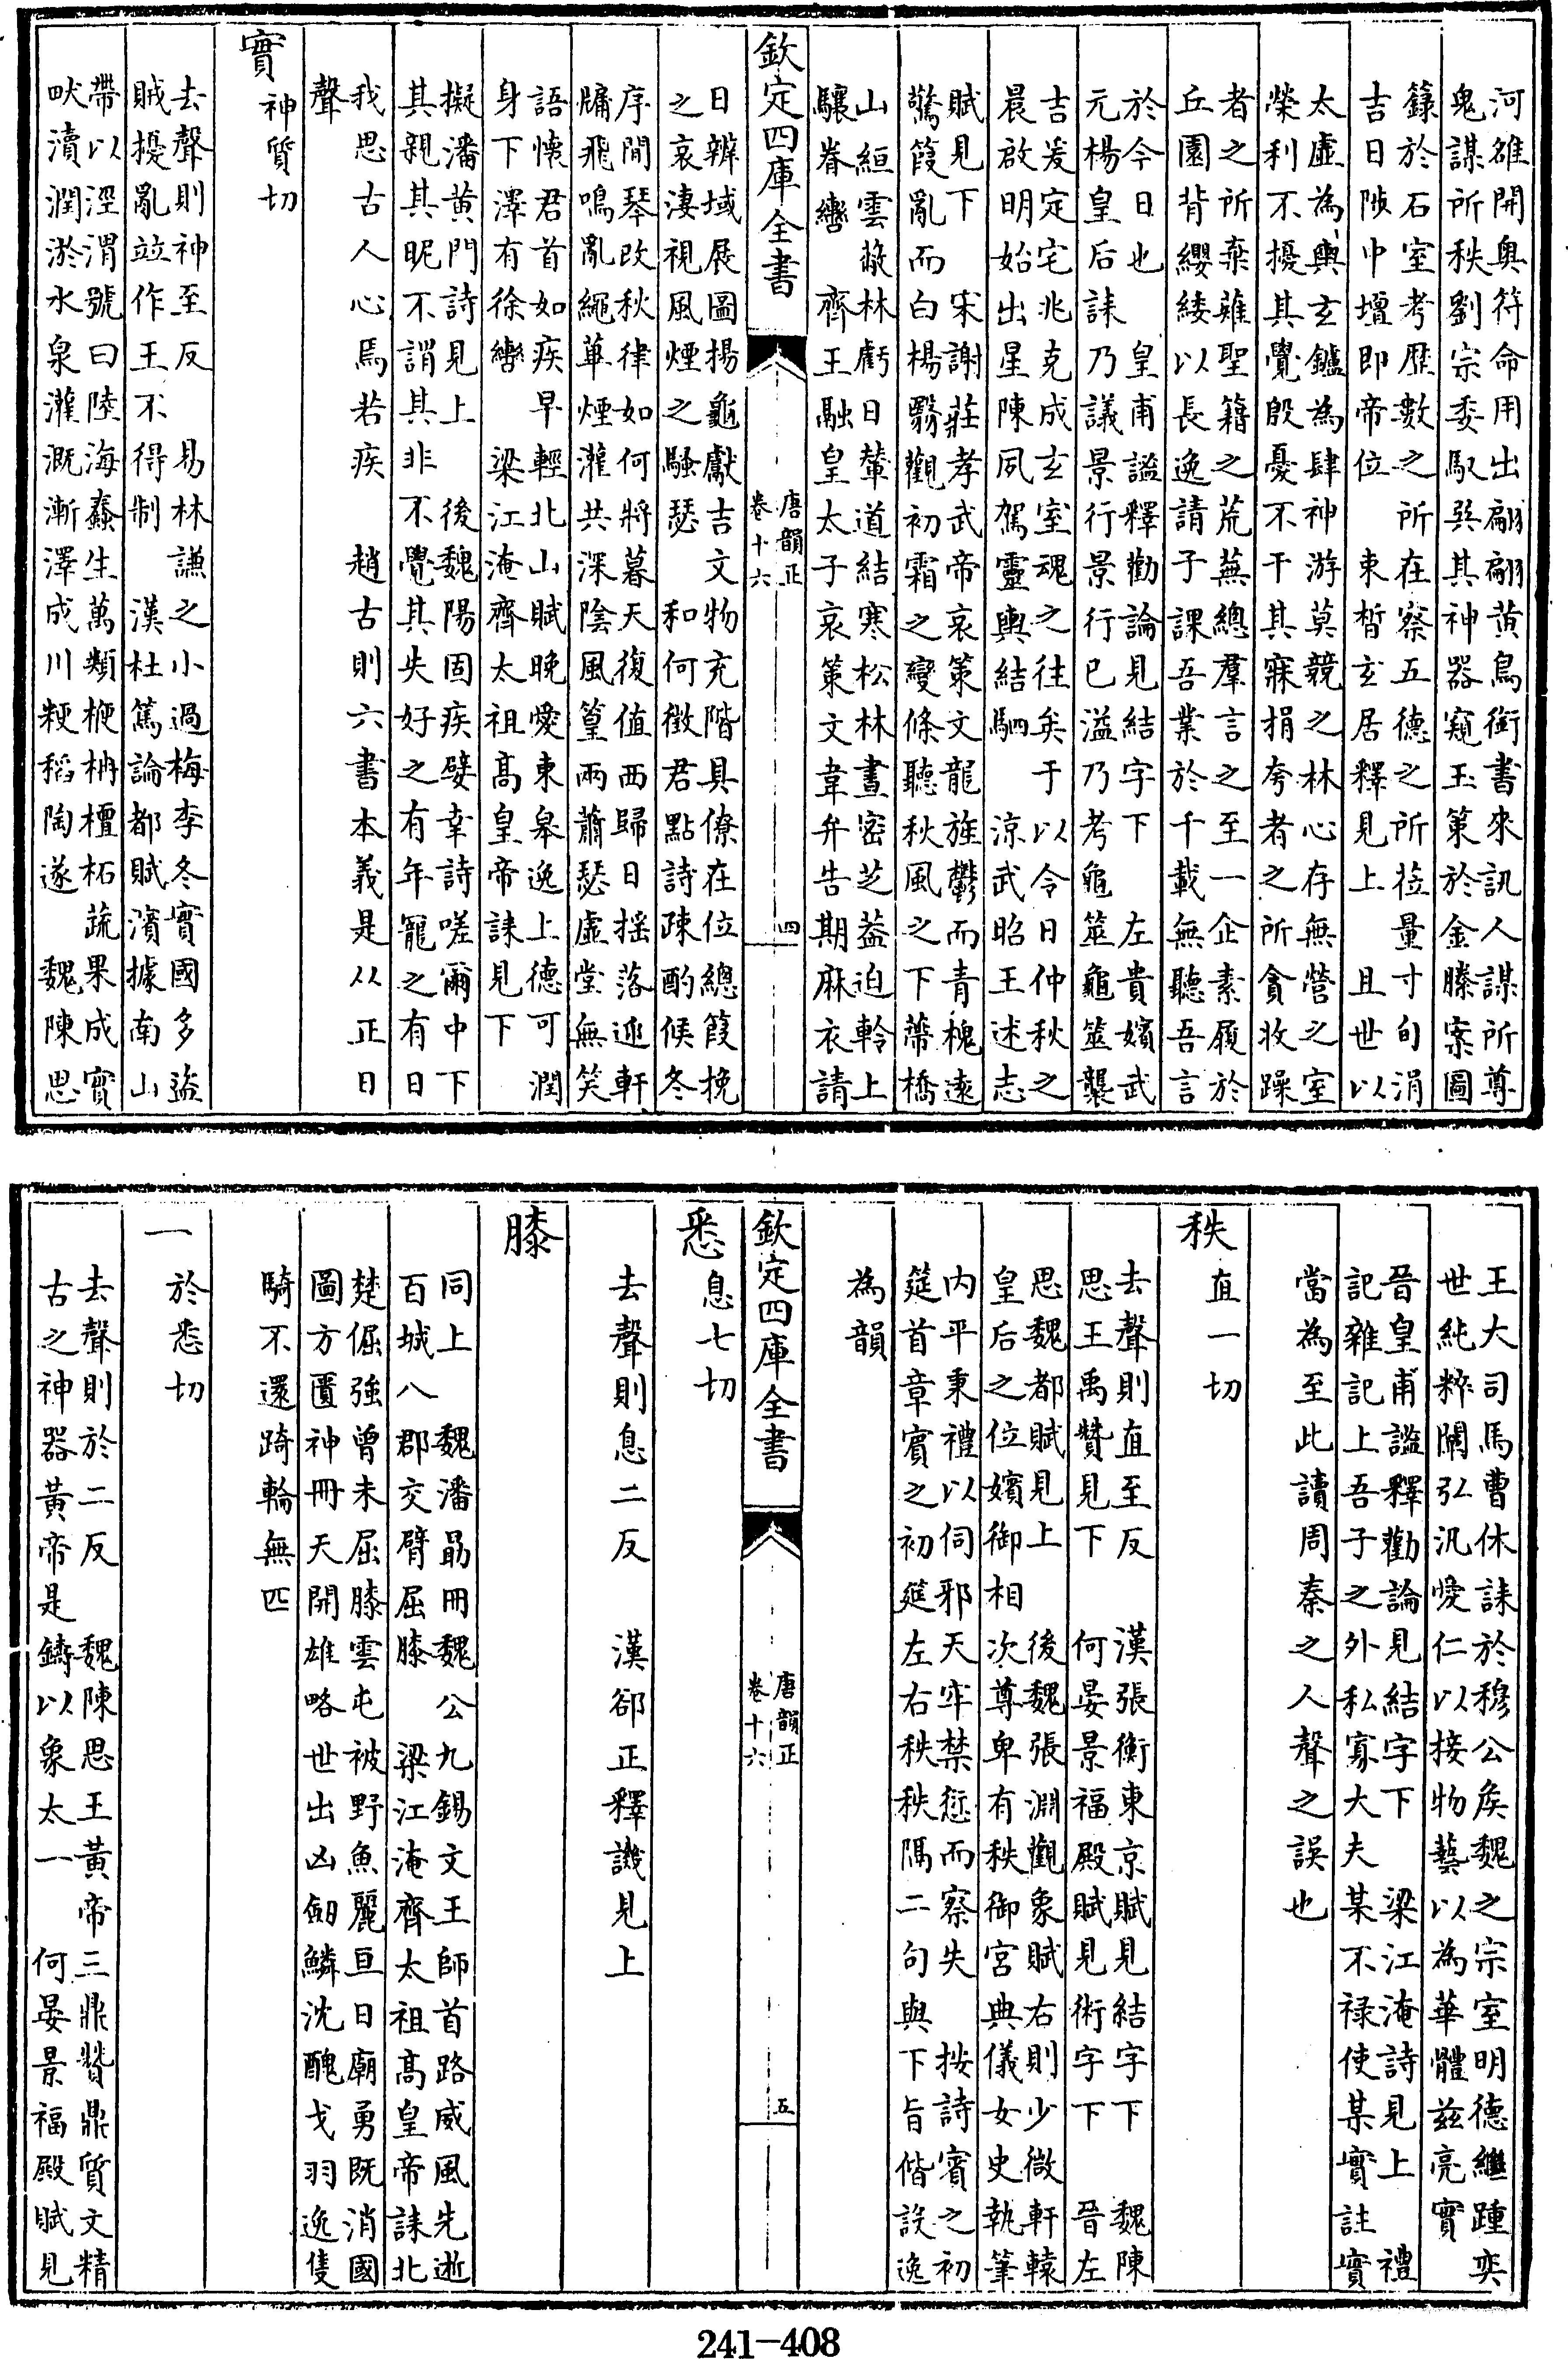 河雒開奥符命用出翩翩黄鳥銜書來訊人謀所尊
鬼謀所秩劉宗委馭㢲其神器窺玉策於金縢案圖
籙於石室考厯數之所在察五德之所莅量寸旬涓
吉日陟中壇即帝位　束晳玄居釋見上　且世以
太虛為輿玄鑪為肆神游莫競之林心存無營之室
榮利不擾其覺殷憂不干其寐捐夸者之所貪收躁
者之所棄雖聖籍之荒蕪總羣言之至一企素履於
丘園背纓緌以長逸請子課吾業於千載無聽吾言
於今日也　皇甫謐釋勸論見結字下　左貴嬪武
元楊皇后誄乃議景行景行已溢乃考龜筮龜筮襲
吉爰定宅兆克成玄室魂之往矣于以令日仲秋之
晨啟明始出星陳夙駕靈輿結駟　涼武昭王述志
賦見下　宋謝莊孝武帝哀策文龍旌鬱而青槐遠
驚葭亂而白楊翳觀初霜之變條聽秋風之下蔕橋
山絙雲蒸林虧日輦道結寒松林晝密芝葢迫軨上
驤眷轡　齊王融皇太子哀策文韋弁告期麻衣請
欽定四庫全書
唐韻正
卷十六
四
日辨域展圖揚龜獻吉文物充階具僚在位總葭挽
之哀淒視風煙之騷瑟　和何徵君點詩疎酌候冬
序閒琴改秋律如何將暮天復值西歸日揺落迎軒
牖飛鳴亂繩蓽煙灌共深陰風篁兩蕭瑟虛堂無笑
語懷君首如疾早輕北山賦晚愛東皋逸上德可潤
身下澤有徐轡　梁江淹齊太祖高皇帝誄見下
擬潘黄門詩見上　後魏陽固疾嬖幸詩嗟爾中下
其親其昵不謂其非不覺其失好之有年寵之有日
我思古人心焉若疾　趙古則六書本義是从正日
聲
實
神質切
去聲則神至反　易林謙之小過梅李冬實國多盜
賊擾亂竝作王不得制　漢杜篤論都賦濱據南山
帶以涇渭號曰陸海蠢生萬類楩柟檀柘蔬果成實
畎瀆潤淤水泉灌溉漸澤成川粳稻陶遂　魏陳思
王大司馬曹休誄於穆公矦魏之宗室明德繼踵奕
世純粹闡弘汎愛仁以接物藝以為華體茲亮實
晉皇甫謐釋勸論見結字下　梁江淹詩見上　禮
記雜記上吾子之外私寡大夫某不禄使某實註實
當為至此讀周秦之人聲之誤也
秩
直一切
去聲則直至反　漢張衡東京賦見結字下　魏陳
思王禹贊見下　何晏景福殿賦見術字下　晉左
思魏都賦見上　後魏張淵觀象賦右則少微軒轅
皇后之位嬪御相次尊卑有秩御宮典儀女史執筆
内平秉禮以伺邪天牢禁愆而察失　按詩賓之初
筵首章賓之初筵左右秩秩隔二句與下旨偕設逸
為韻
欽定四庫全書
唐韻正
卷十六
五
悉
息七切
去聲則息二反　漢郤正釋譏見上
膝
同上　魏潘勗冊魏公九錫文王師首路威風先逝
百城八郡交臂屈膝　梁江淹齊太祖高皇帝誄北
楚倔強曾未屈膝雲屯被野魚麗亘日廟勇旣消國
圖方匱神冊天開雄略世出凶劒鱗沈醜戈羽逸隻
騎不還踦輪無匹
一
於悉切
去聲則於二反　魏陳思王黃帝三鼎贊鼎質文精
古之神器黃帝是鑄以象太一　何晏景福殿賦見
241-408